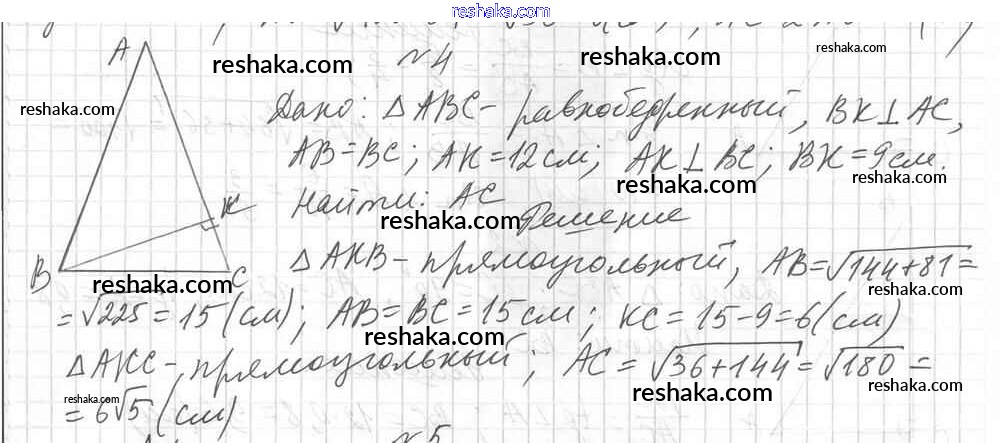 reshaka.com
№4
reshaka.com
reshaka.com
reshaka.com
A
reshaka.com
Дано: △ABC - равнобедренный, BK⊥AC,
AB=BC; AK=12см; AK⊥BC; BK=9см.
reshaka.com
reshaka.com
Найти: AC
reshaka.com
Решение
K
B
C
△AKB - прямоугольный, AB=√144+81=
reshaka.com
reshaka.com
=√225=15(см); AB=BC=15см; KC=15-9=6(см)
reshaka.com
△AKC - прямоугольный; AC=√36+144=√180=
reshaka.com
reshaka.com
reshaka.com
=6√5(см)
№5